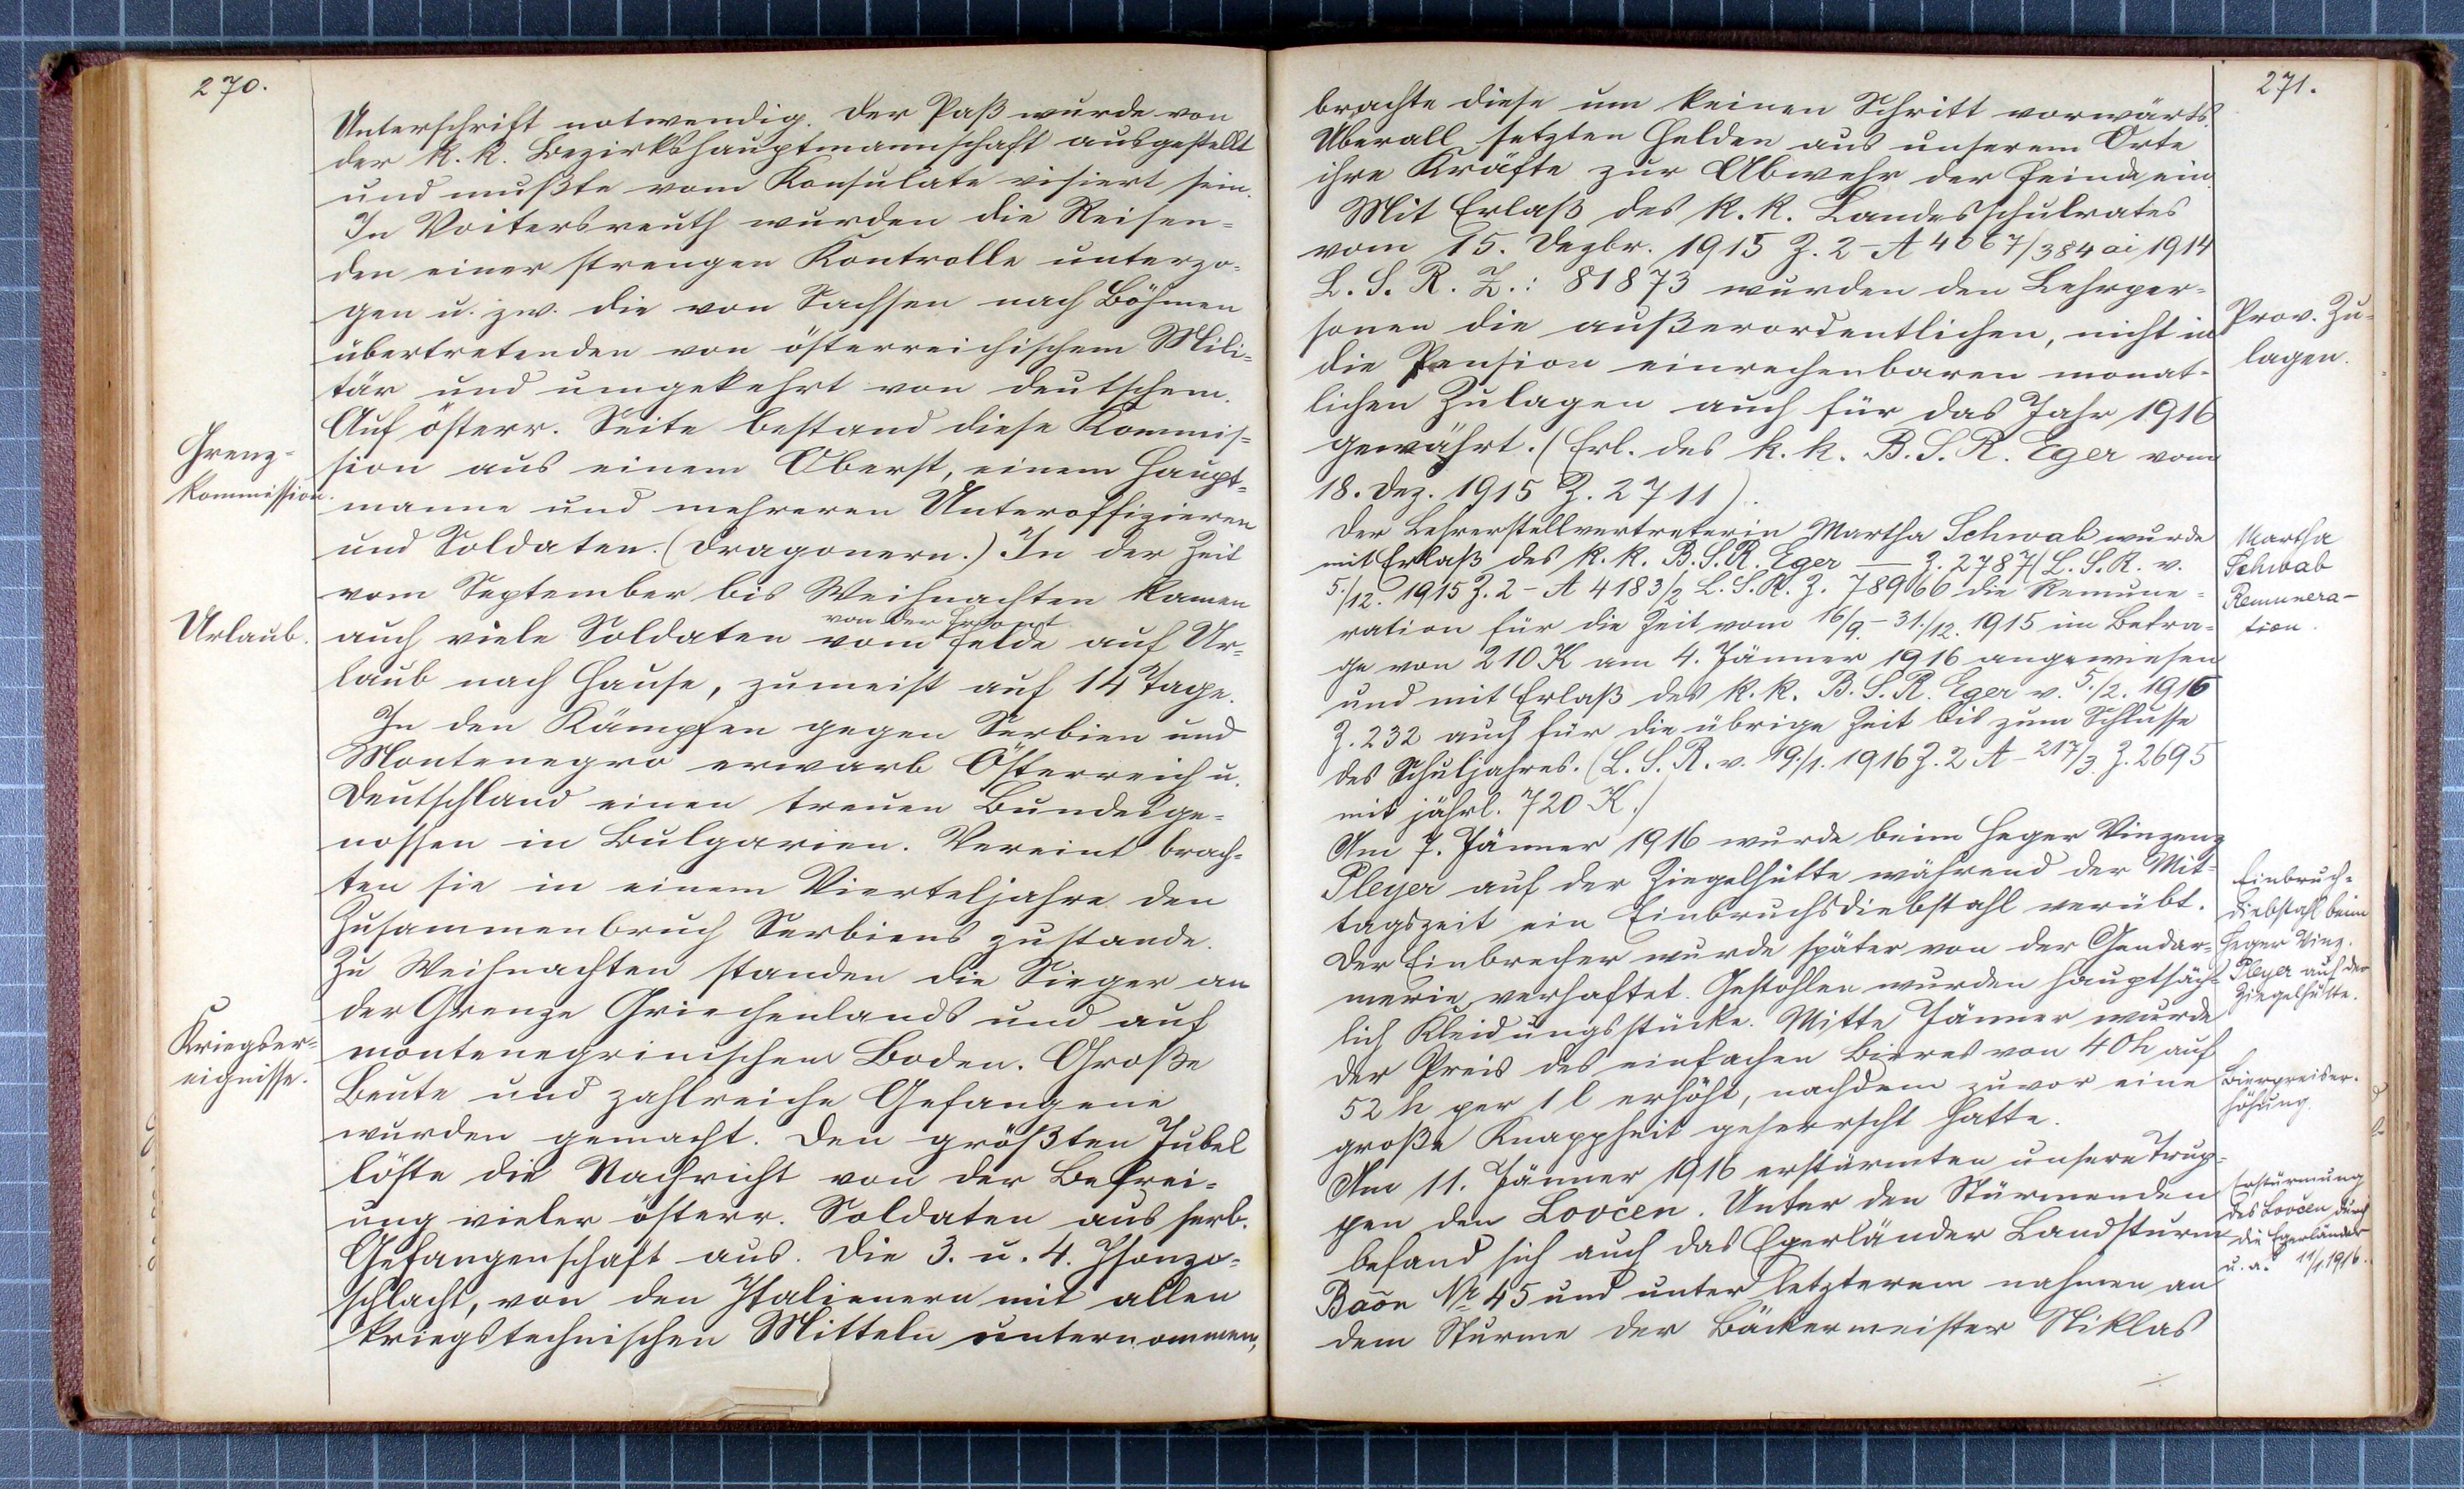 270.
Unterschrift notwendig. Der Paß wurde von
der k. k. Bezirkshauptmannschaft ausgestellt
und mußte vom Konsulate visiert sein.
In Voitersreuth wurden die Reisen-
den einer strengen Kontrolle unterzo-
gen u. zw. die von Sachsen nach Böhmen
übertretenden von österreichischem Mili-
tär und umgekehrt von deutschem.
Auf österr. Seite bestand diese Kommis-
Grenz-
sion aus einem Oberst, einem Haupt-
kommission.
manne und mehreren Unteroffizieren
und Soldaten. (Dragonern.) In der Zeit
vom September bis Weihnachten kamen
von der Front
Urlaub.
auch viele Soldaten vom Felde auf Ur-
laub nach Hause, zumeist auf 14 Tage.
In den Kämpfen gegen Serbien und
Montenegro erwarb Österreich u.
Deutschland einen treuen Bundesge-
nossen in Bulgarien. Vereint brach-
ten sie in einem Vierteljahre den
Zusammenbruch Serbiens zustande.
Zu Weihnachten standen die Sieger an
der Grenze Griechenlands und auf
Kriegser-
eignisse.
montenegrinischem Boden. Große
Beute und zahlreiche Gefangene
wurden gemacht. Den größten Jubel
löste die Nachricht von der Befrei-
ung vieler österr. Soldaten aus serb.
Gefangenschaft aus. Die 3. u. 4. Isonzo-
schlacht, von den Italienern mit allen
kriegstechnischen Mitteln unternommen,
271.
brachte diese um keinen Schritt vorwärts.
Überall setzten Helden aus unserem Orte
ihre Kräfte zur Abwehr der Feinde ein.
Mit Erlaß des k. k. Landesschulrates
vom 15. Dezbr. 1915 Z. 2-A 4067/384 ai 1914
L. S. R. Z.: 81873 wurden den Lehrper-
sonen die außerordentlichen, nicht in
Prov. Zu-
lagen.
die Pension einrechenbaren monat-
lichen Zulagen auch für das Jahr 1916
gewährt. (Erl. des k. k. B. S. R. Eger vom
18. Dez. 1915 Z. 2711).
Der Lehrerstellvertreterin Martha Schwab wurde
Martha
Schwab
Remunera-
tion.
mit Erlaß des k. k. B. S. R. Eger — Z. 2787 (L. S. R. v.
5./12. 1915 Z. 2-A 4183/2 L. S. R. Z. 78966 die Remune-
ration für die Zeit vom 16/9.-31./12. 1915 im Betra-
ge von 210 K am 4. Jänner 1916 angewiesen
und mit Erlaß des k. k. B. S. R. Eger v. 5./2. 1916
Z. 232 auch für die übrige Zeit bis zum Schlusse
des Schuljahres. (L. S. R. v. 19./1. 1916 Z. 2 A-217/3 Z. 2695
mit jährl. 720 K.)
Am 7. Jänner 1916 wurde beim Heger Vinzenz
Einbruch-
diebstahl beim
Heger Vinz.
Pleyer auf der
Ziegelhütte.
Pleyer auf der Ziegelhütte während der Mit-
tagszeit ein Einbruchsdiebstahl verübt.
Der Einbrecher wurde später von der Gendar-
merie verhaftet. Gestohlen wurden hauptsäch-
lich Kleidungsstücke. Mitte Jänner wurde
der Preis des einfachen Bieres von 40 h auf
Bierpreiser-
höhung.
52 h per 1 l erhöht, nachdem zuvor eine
große Knappheit geherrscht hatte.
Am 11. Jänner 1916 erstürmten unsere Trup-
Erstürmung
des Lovčen durch
die Egerländer
u. a. 11/1. 1916.
pen den Lovčen. Unter den Stürmenden
befand sich auch das Egerländer Landsturm-
Baon Nr 45 und unter letzterem nahmen an
dem Sturme der Bäckermeister Niklas